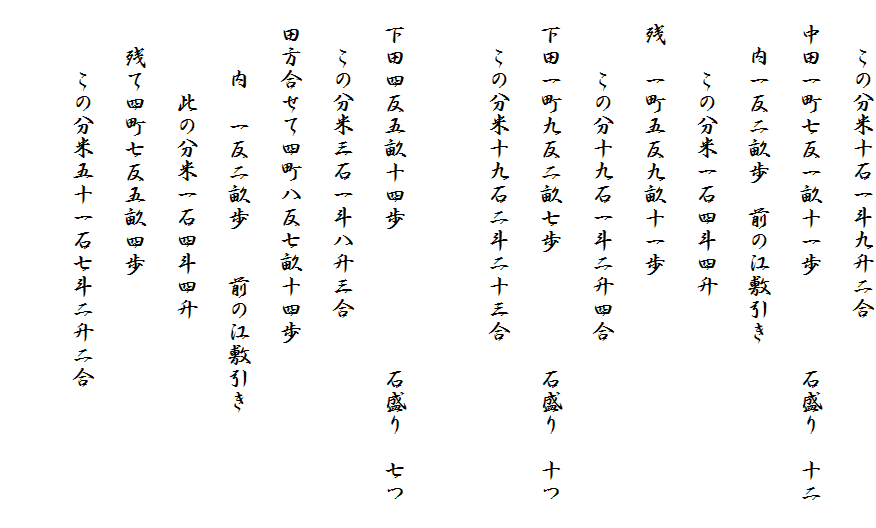 この分米十石一斗九升二合
中田一町七反一畝十一歩　石盛り　十二
内一反二畝歩　前の江敷引き
この分米一石四斗四升
残　一町五反九畝十一歩
この分十九石一斗二升四合
下田一町九反二畝七歩　石盛り　十つ
この分米十九石二斗二十三合
下田四反五畝十四歩　石盛り　七つ
この分米三石一斗八升三合
田方合せて四町八反七畝十四歩
内　一反二畝歩　前の江敷引き
此の分米一石四斗四升
残て四町七反五畝四歩
この分米五十一石七斗二升二合